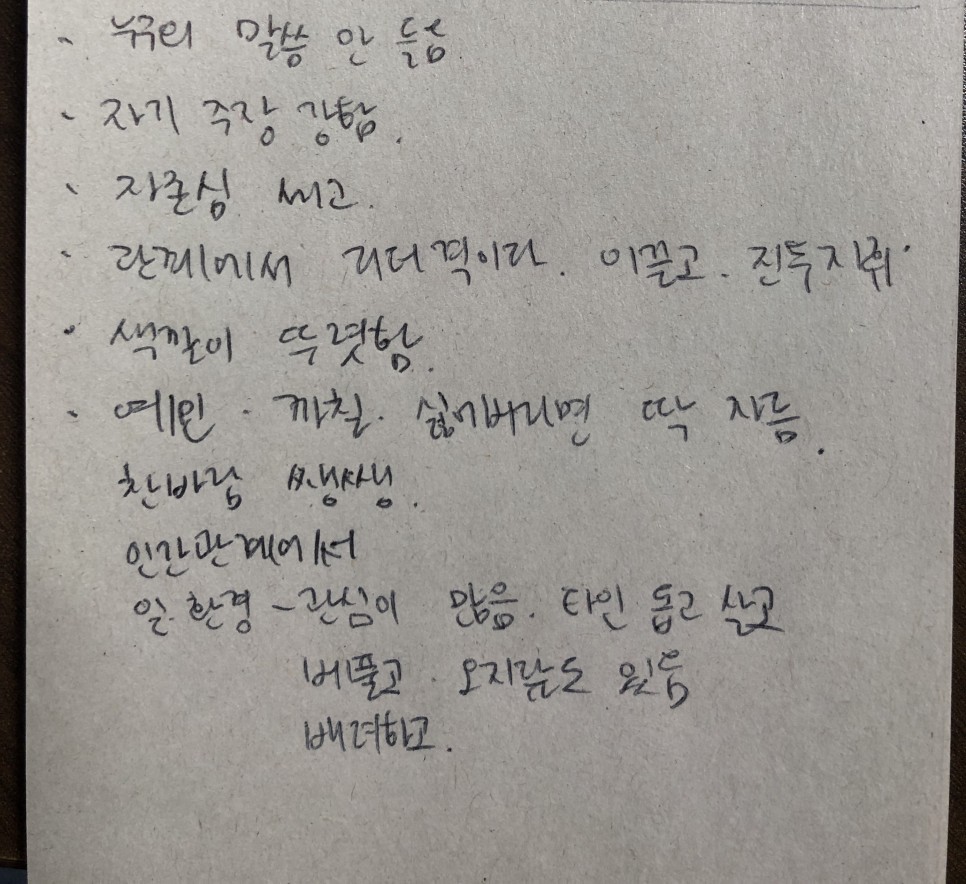 · 누구의 말씀 안 들음
· 자기 주장 강함.
· 자존심 쎄고.
· 단체에서 리더격이다. 이끌고. 진두지휘.
· 색깔이 뚜렷함.
· 예민 · 까칠 · 싫어버리면 딱 자름.
찬바람 쌩쌩.
인간관계에서
일.환경 - 관심이 많음. 타인 돕고 살고
베풀고. 오지랖도 있음
배려하고.